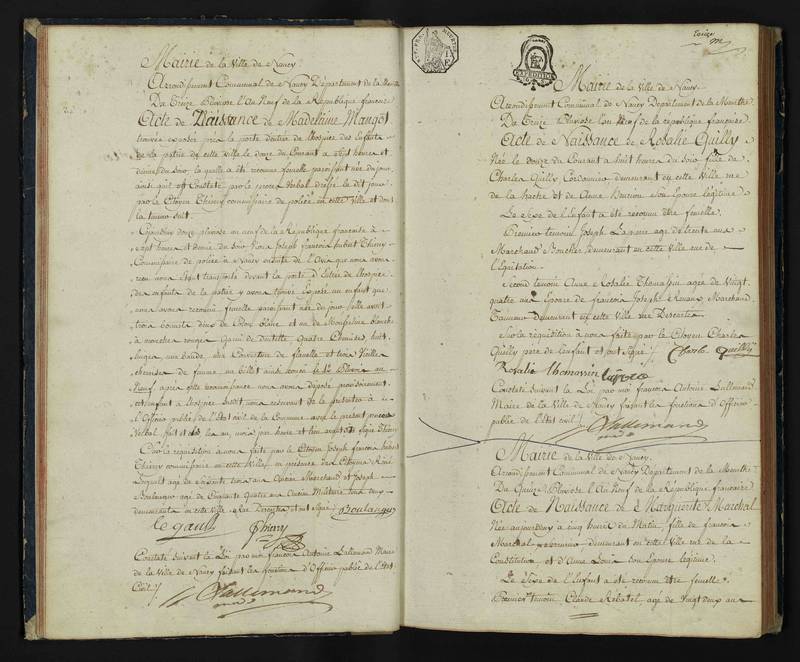 Mairie de la Ville de Nancy.
Arrondissement Communal de Nancy Département de la Meurthe
Du Treize Pluviose l'An Neuf de la République française
Acte de Naissance de Madeleine Mangot
trouvée exposée près la porte d'entrée de l'hospice des Enfants
de la patrie de cette ville le douze du Courant a sept heures et
demie du soir, la quelle a été reconnue femelle paroissant née du jour,
ainsi qu'il est Constaté par le procès Verbal dressé le dit jour
par le Citoyen Thiery commissaire de police en cette Ville et dont
la teneur suit.
Cejourd'huy douze pluviose an neuf de la République française à
sept heures et demie du soir Nous Joseph françois hubert Thiery
Commissaire de police à Nancy ensuite de l'Avis que nous avons
reçu nous étant transporté devant la porte d'Entrée de l'hospice
des enfants de la patrie y avons trouvé Exposé un enfant que
nous avons reconnu femelle paroissant née du jour, elle avoit
trois bonnets deux de Coton blanc et un de Mousseline blanche
à mouches rouges Garni de dentelle, quatre Chemises, huit
Langes, une bande, une Couverture de flanelle et trois Vieilles
chemises de femme, un billet ainsi conçu le 12 Pluviose an
Neuf, après cette reconnoissance nous avons déposé provisoirement
cet enfant à l'hospice susdit nous réservant de le présenter à
l'Officier public de l'état civil de la Commune avec le present procès
Verbal fait et clos les an, mois, jour, heure et lieu avant dits signé Thiery
Sur la requisition à nous faite par le Citoyen Joseph françois hubert
Thiery commissaire en cette Ville, en presence des Citoyens
Legault agé de soixante trois ans Ancien Marchand et Joseph
Boulanger agé de Cinquante Quatre ans Ancien Militaire tous deux
demeurants en cette ville et ont signé / Boulanger
le gault Thiery
Constaté suivant la Loi par moi françois Antoine Lallemand Maire
de la Ville de Nancy faisant les fonctions d'Officier public de l'état
Civil. /
Lallemand
treize
Mairie de la Ville de Nancy.
Arrondissement Communal de Nancy Département de la Meurthe
Du Treize Pluviose l'an Neuf de la République française
Acte de Naissance de Rosalie Quilly
Née le douze du Courant a huit heures du soir fille de
Charles Quilly Cordonnier demeurant en cette Ville rue
de la hache et de Anne son Epouse légitime.
Le Sexe de l'Enfant a été reconnu être femelle.
Premier temoin Joseph agé de trente ans
Marchand Boucher demeurant en cette Ville rue de
l'Equitation.
Second temoin Anne Rosalie Thomassin agée de Vingt
quatre ans Epouse de françois Joseph Marchand
Tanneur demeurant en cette Ville rue Descartes
Sur la réquisition à nous faite par le Citoyen Charles
Quilly père de l'enfant et ont signé / Charles Quilly
Rosalie thomassin
Constaté suivant la Loi par moi françois Antoine Lallemand
Maire de la Ville de Nancy faisant les fonctions d'Officier
public de l'état civil /
Lallemand
Mairie de la Ville de Nancy.
Arrondissement Communal de Nancy Département de la Meurthe
Du Quinze Pluviose l'An Neuf de la République française
Acte de Naissance de Marguerite Marchal
Née aujourd'huy à cinq heures du Matin, fille de françois
Marchal demeurant en cette Ville rue de la
Constitution et d'Anne son Epouse légitime.
Le Sexe de l'Enfant a été reconnu être femelle.
Premier temoin Claude Rebatel agé de Vingt deux ans